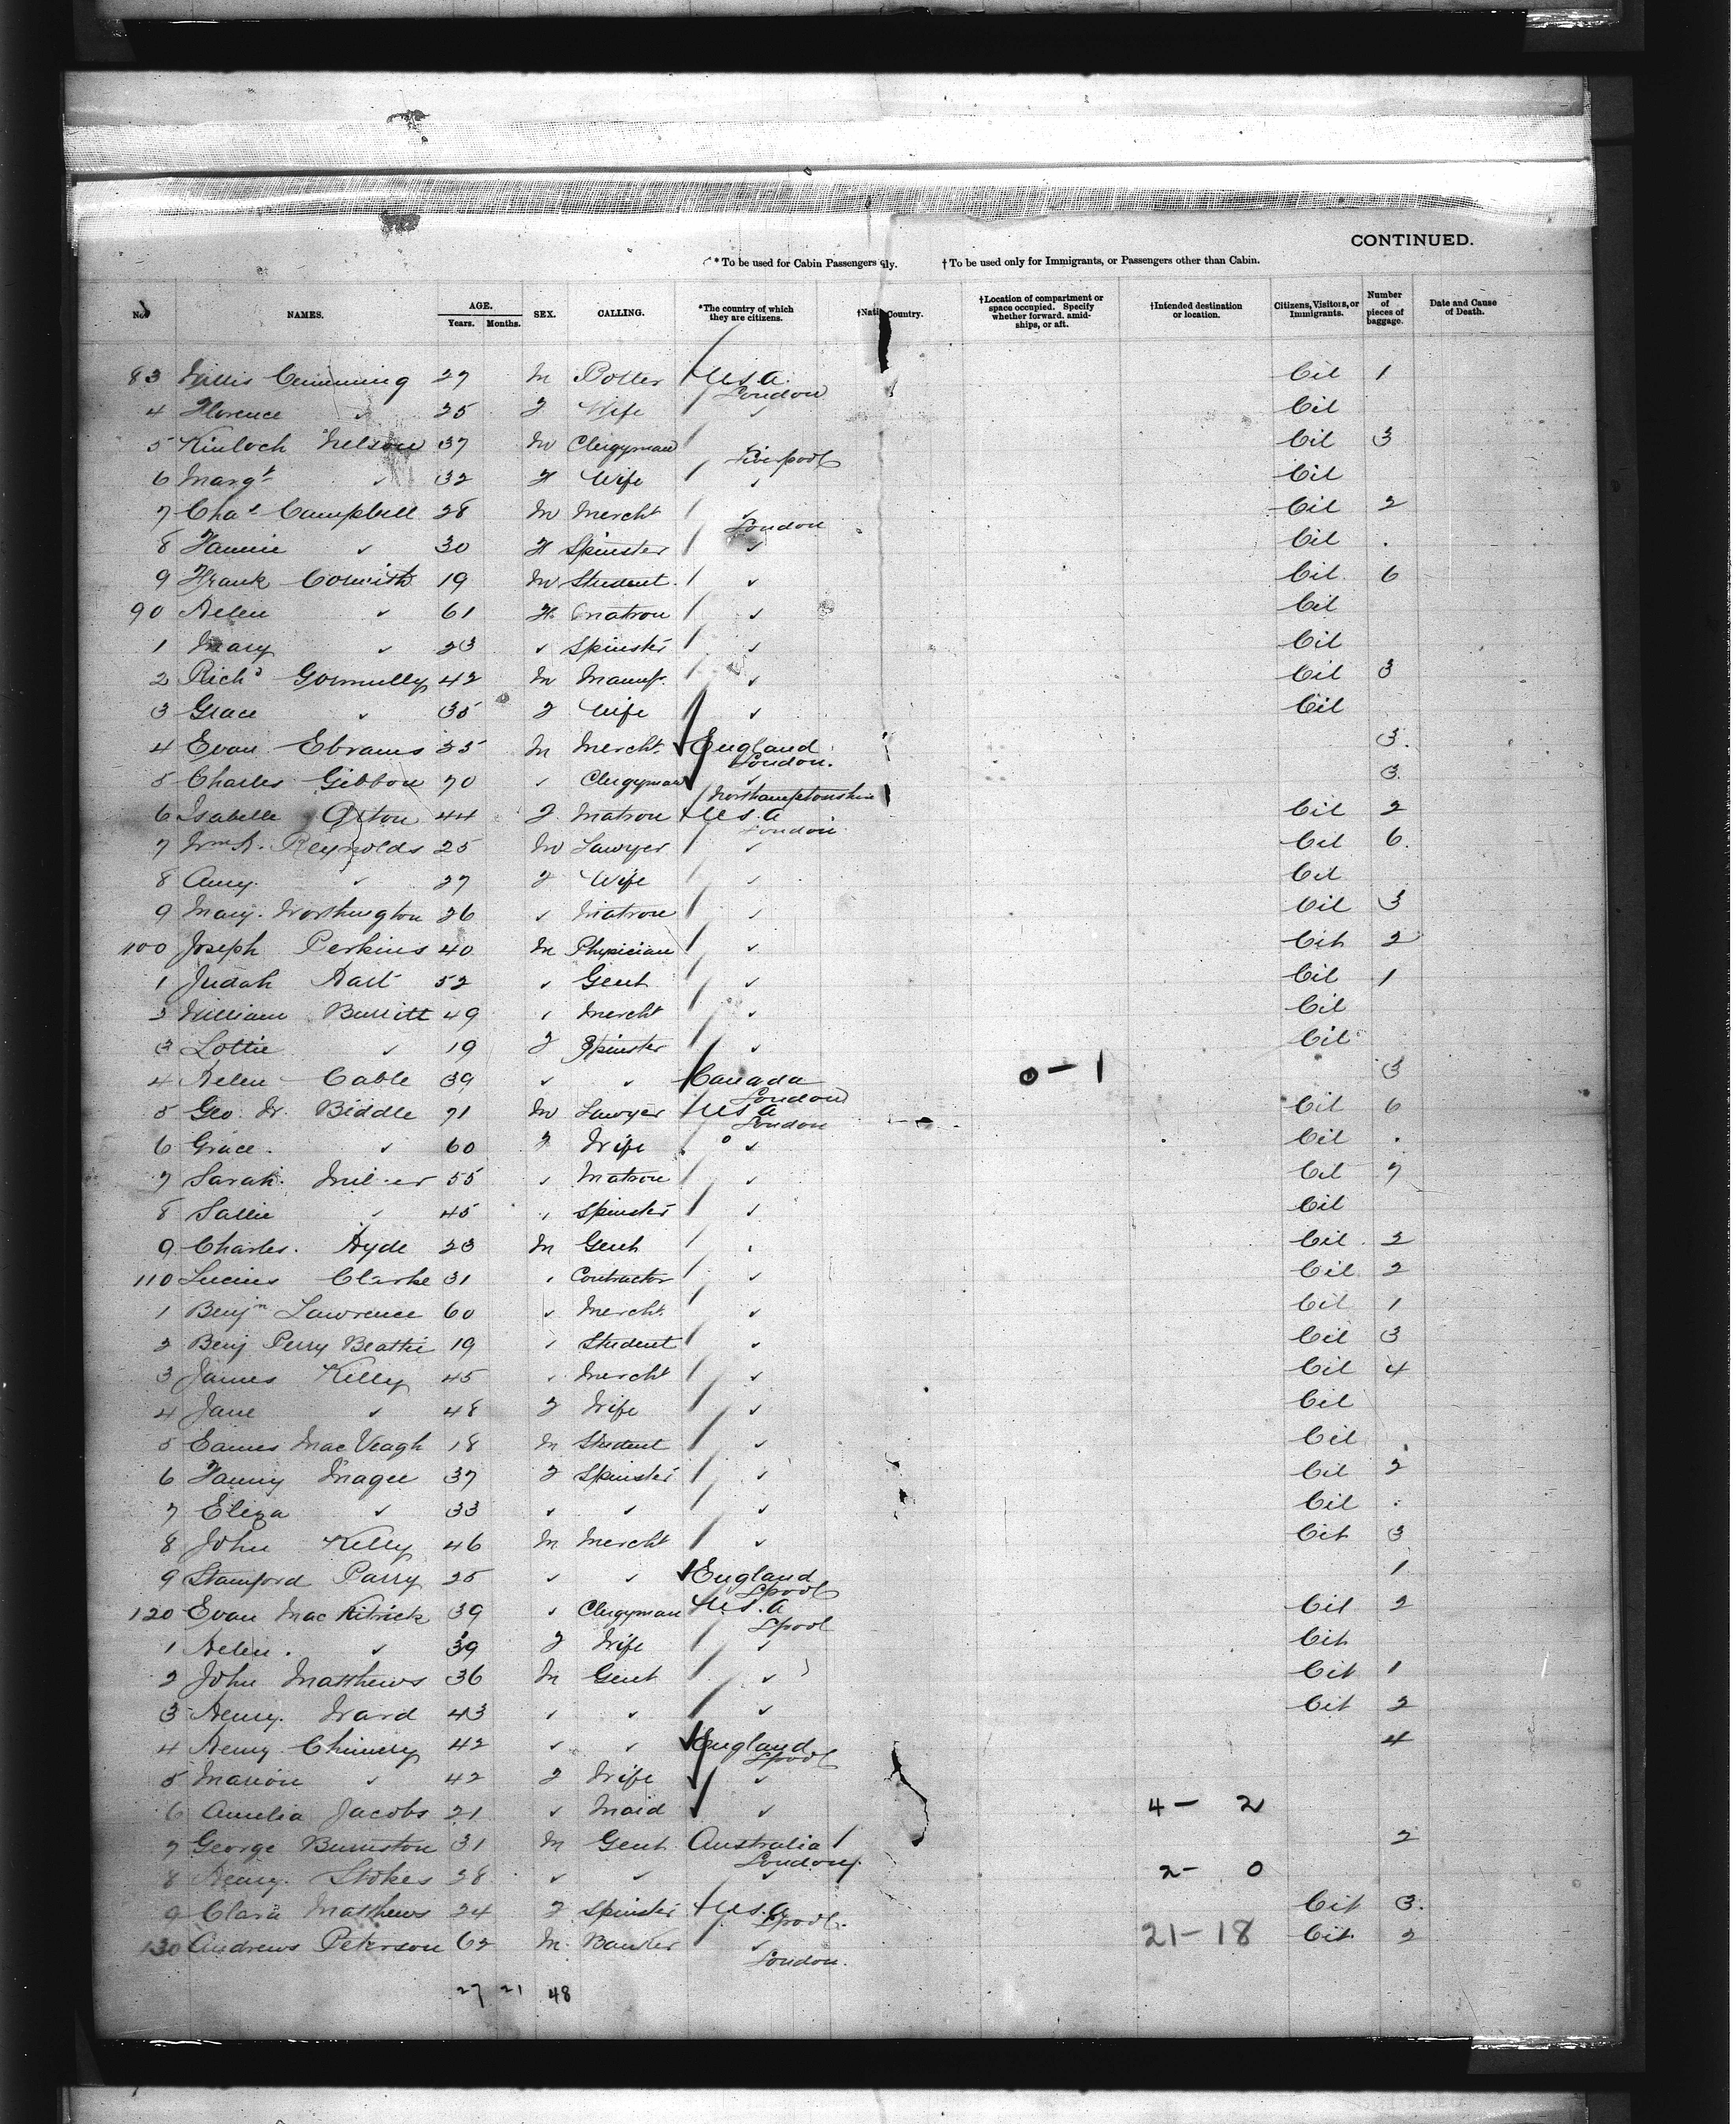 CONTINUED.
* To be used for Cabin Passengers ly. † To be used only for Immigrants, or Passengers other than Cabin.
No. NAMES. AGE. Years. Months. SEX. CALLING. *The country of which they are citizens. †Nati Country. †Location of compartment or space occupied. Specify whether forward, amidships, or aft. †Intended destination or location. Citizens, Visitors, or Immigrants. Number of pieces of baggage. Date and Cause of Death.
83 Willis Cumming 27 M Potter U.S.A. London Cit 1
4 Florence " 25 F Wife " Cit
5 Kinloch Nelson 37 M Clergyman Liverpool Cit 3
6 Margt " 32 F Wife " Cit
7 Chas Campbell 28 M Mercht " London Cit 2
8 Fannie " 30 F Spinster " Cit
9 Frank Cornish 19 M Student " Cit 6
90 Helen " 61 F Matron " Cit
1 Mary " 23 " Spinster " Cit
2 Richd Gormully 42 M Manuf. " Cit 3
3 Grace " 35 F Wife " Cit
4 Evan Ebrams 25 M Mercht England London. 3.
5 Charles Gibbon 70 " Clergyman " Northamptonshire 3
6 Isabelle 44 F Matron U.S.A. London Cit 2
7 Wm Reynolds 25 M Lawyer " Cit 6.
8 Amy " 27 F Wife " Cit
9 Mary Worthington 26 " Matron " Cit 3
100 Joseph Perkins 40 M Physician " Cit 2
1 Judah Hart 52 " Gent " Cit 1
2 William Burritt 49 " Mercht " Cit
3 Lottie " 19 F Spinster " Cit
4 Helen Cable 39 " " Canada London 0-1 3
5 Geo. W. Biddle 71 M Lawyer U.S.A. London Cit 6
6 Grace " 60 F Wife " Cit
7 Sarah 55 " Matron " Cit 7
8 Sallie " 45 " Spinster " Cit
9 Charles Hyde 23 M Gent " Cit 2
110 Lucius Clarke 31 " Contractor " Cit 2
1 Benjn Lawrence 60 " Mercht " Cit 1
2 Benj Perry Beattie 19 " Student " Cit 3
3 James Kelly 45 " Mercht " Cit 4
4 Jane " 48 F Wife " Cit
5 Eames Mac Veagh 18 M Student " Cit
6 Fanny Magee 37 F Spinster " Cit 2
7 Eliza " 33 " " " Cit
8 John Kelly 46 M Mercht " Cit 3
9 Stamford Parry 25 " " England Lpool 1
120 Evan Mac Kitrick 39 " Clergyman U.S.A Lpool Cit 2
1 Helen " 39 F Wife " Cit
2 John Matthews 36 M Gent " Cit 1
3 Henry Ward 43 " " " Cit 2
4 Henry Chinnery 42 " " England Lpool 4
5 Marion " 42 F Wife "
6 Amelia Jacobs 21 " Maid " 4-2
7 George 31 M Gent Australia London 2
8 Henry Stokes 28 " " " 2-0
9 Clara Matthews 24 F Spinster U.S.A. Lpool Cit 3.
130 Andrews Peterson 62 M. Banker " London. 21-18 Cit 2
27 21 48